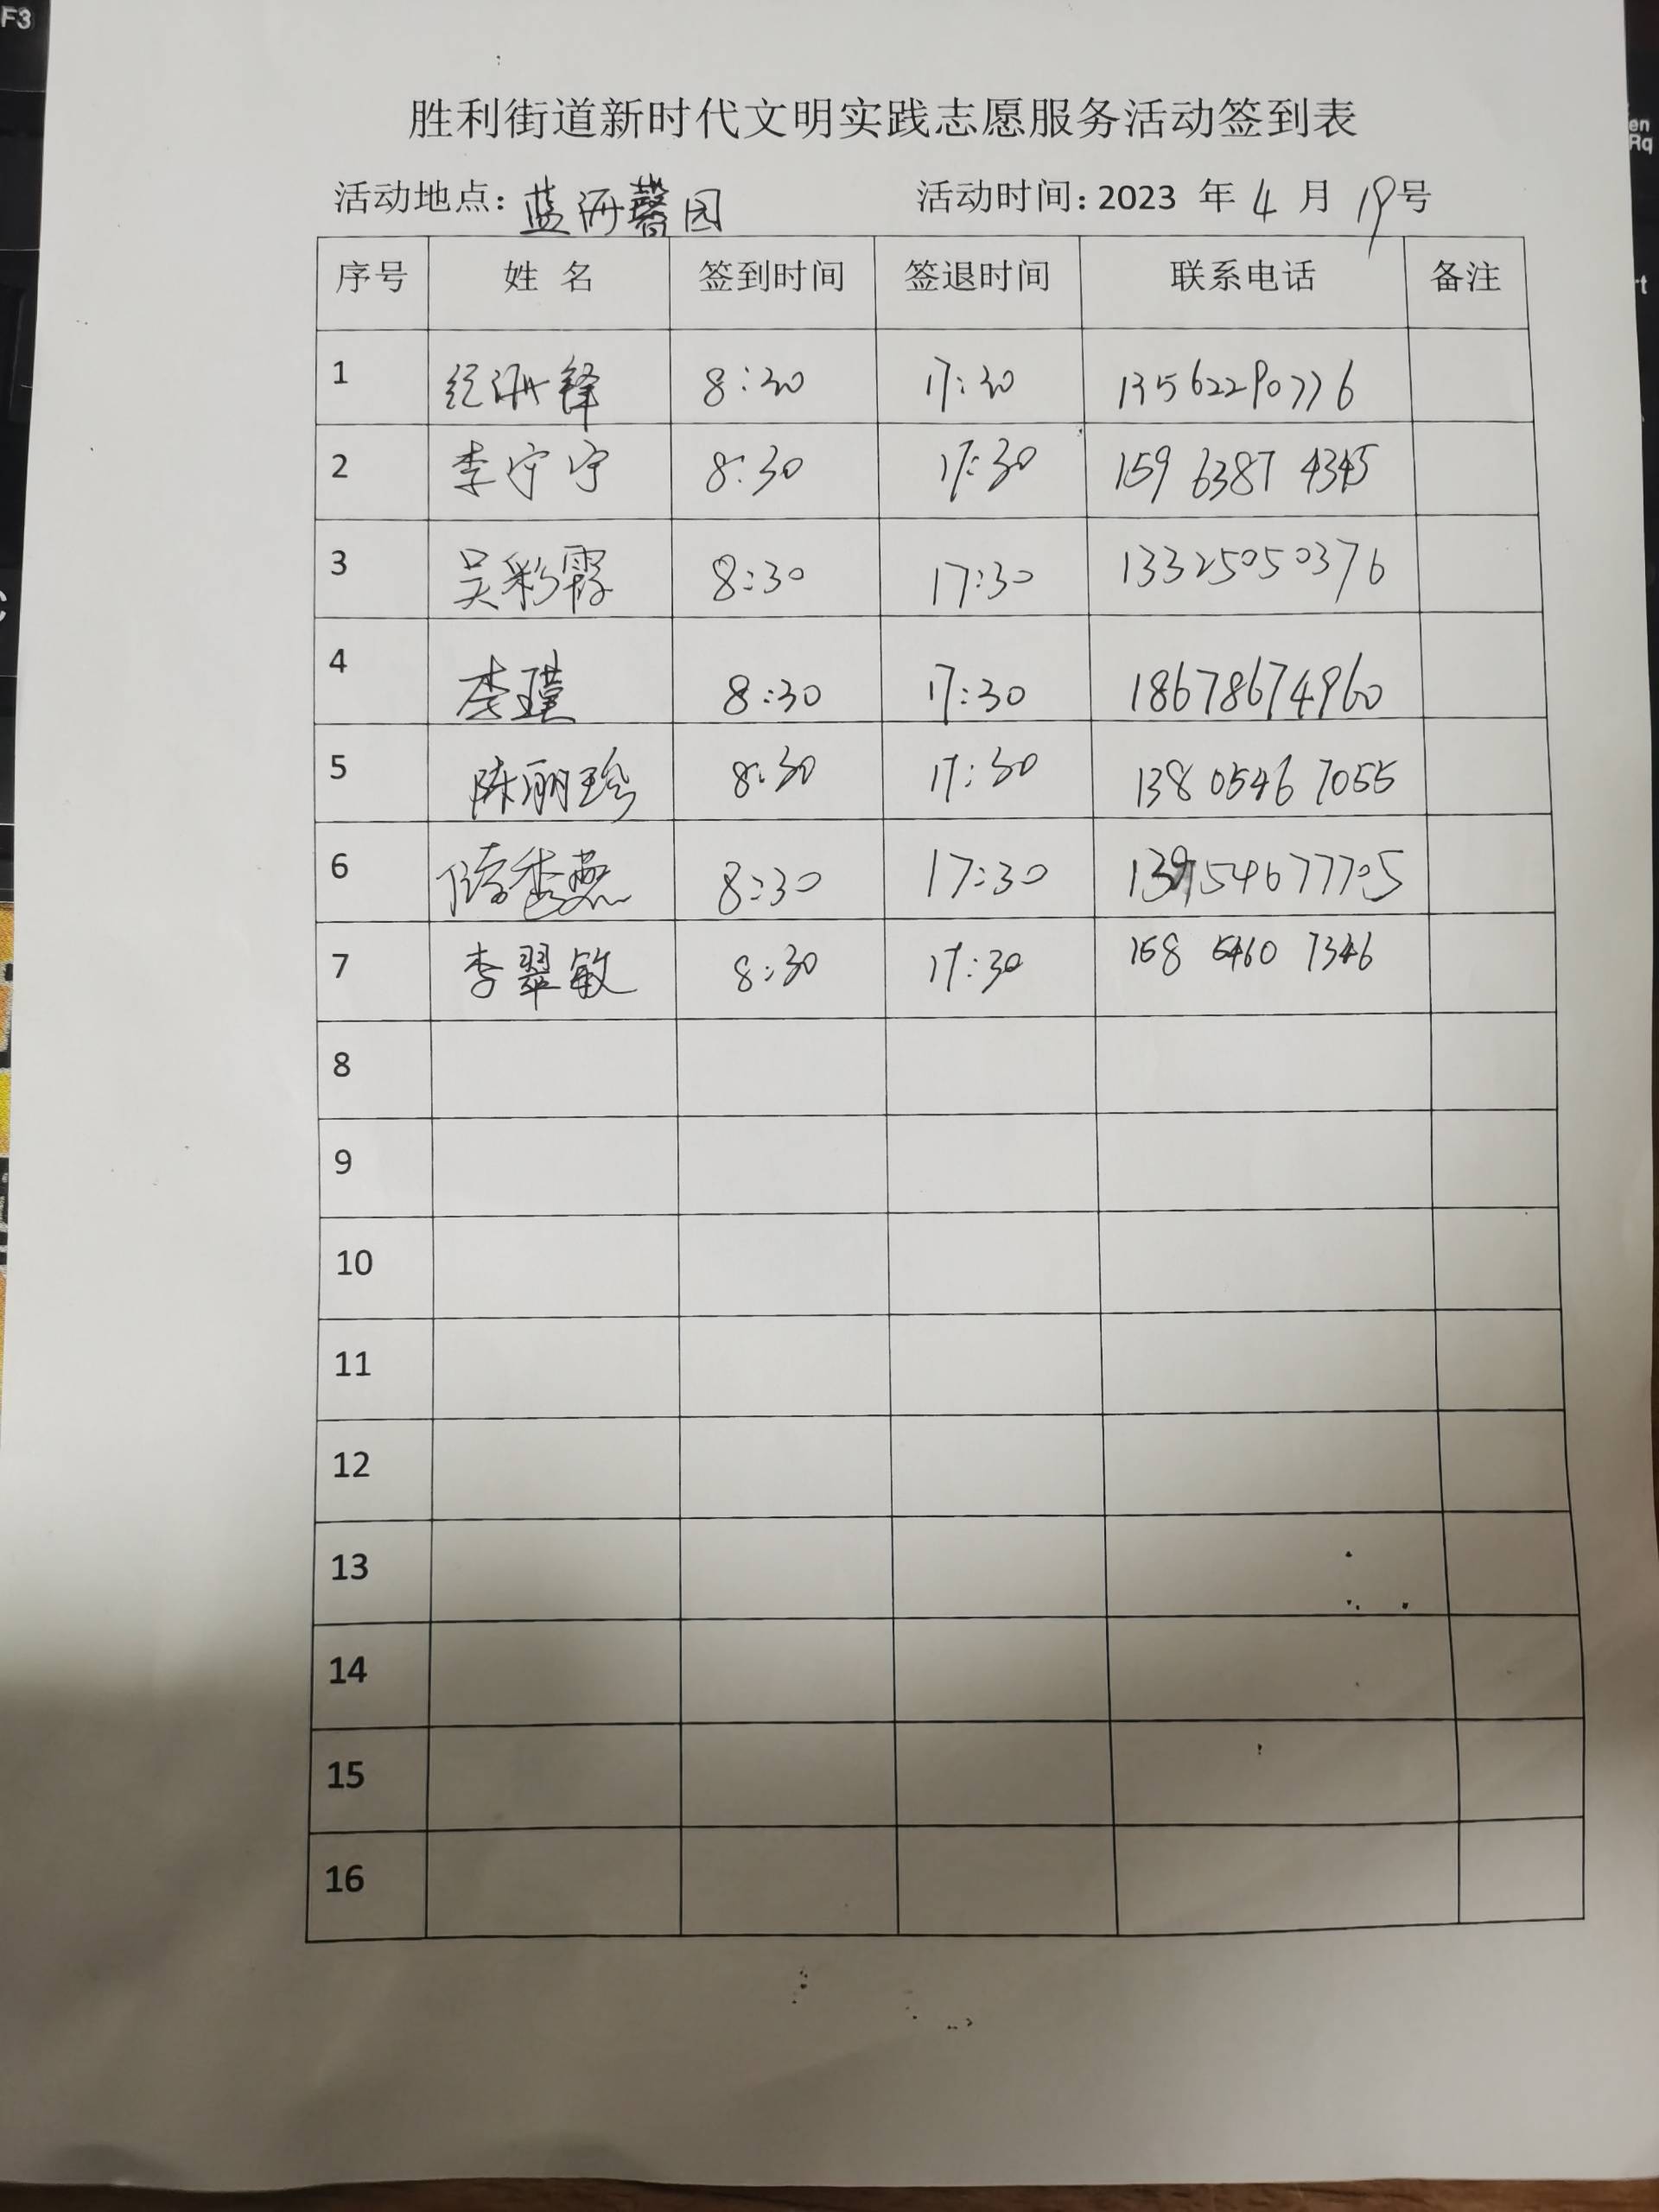 胜利街道新时代文明实践志愿服务活动签到表
活动地点：蓝海馨园 活动时间：2023 年 4 月 19号
序号 姓 名 签到时间 签退时间 联系电话 备注
1 纪洲锋 8:30 17:30 13562290776
2 李宁宁 8:30 17:30 159 6387 4345
3 吴彩霞 8:30 17:30 13325050376
4 李瑾 8:30 17:30 18678674960
5 陈丽珍 8:30 17:30 138 0546 7055
6 陈秀燕 8:30 17:30 13954677705
7 李翠敏 8:30 17:30 158 5460 7346
8
9
10
11
12
13
14
15
16
F3
en
Rq